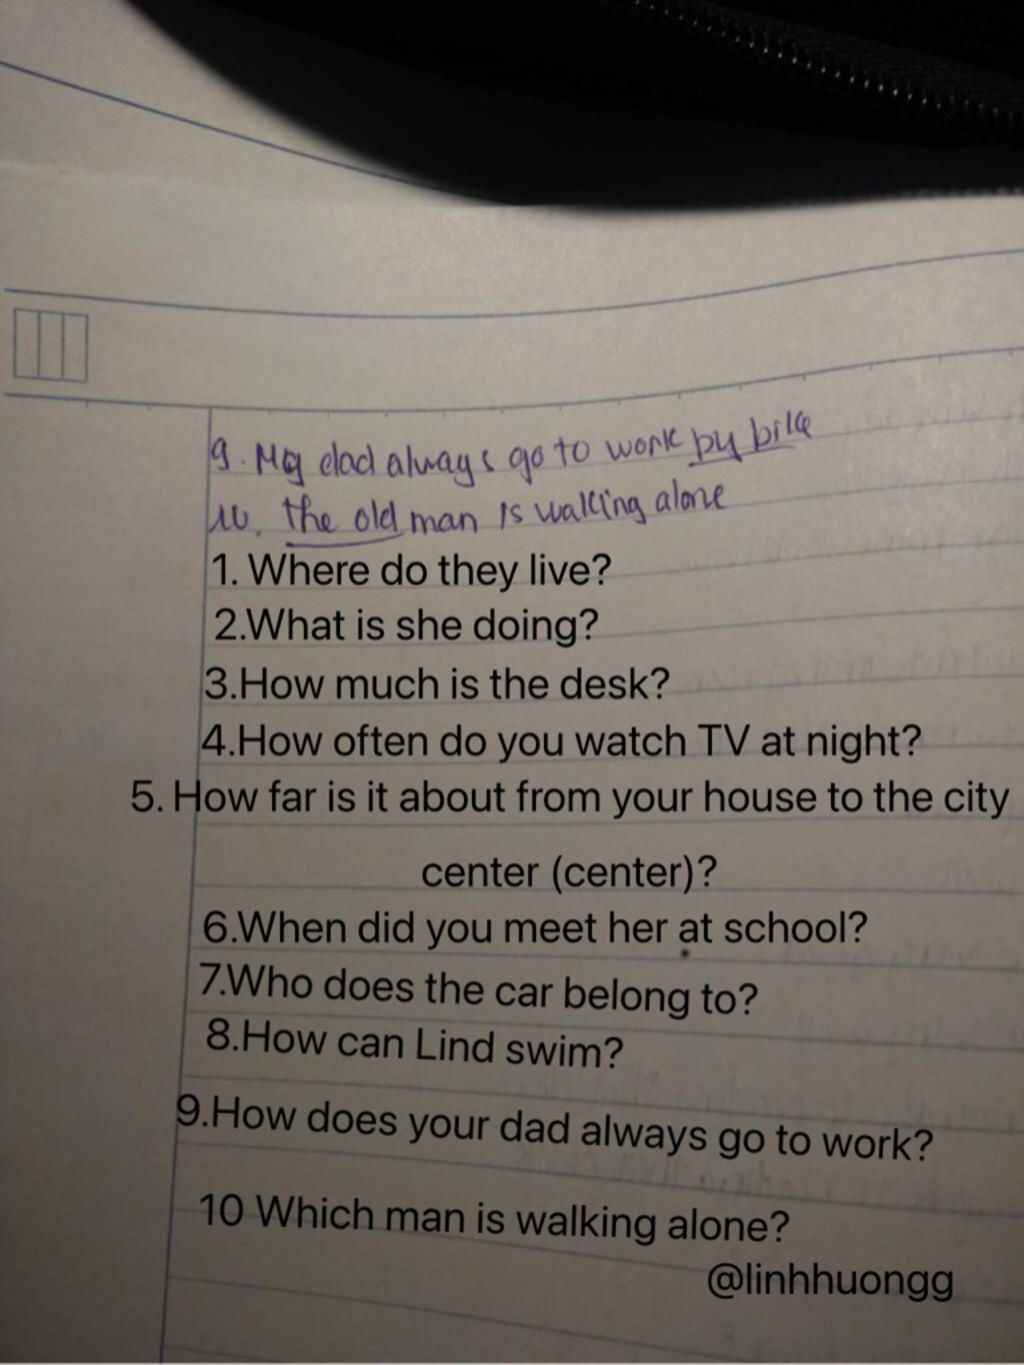 9. My dad always go to work by bike
10. the old man is walking alone
1. Where do they live?
2.What is she doing?
3.How much is the desk?
4.How often do you watch TV at night?
5. How far is it about from your house to the city
center (center)?
6.When did you meet her at school?
7.Who does the car belong to?
8.How can Lind swim?
9.How does your dad always go to work?
10 Which man is walking alone?
@linhhuongg